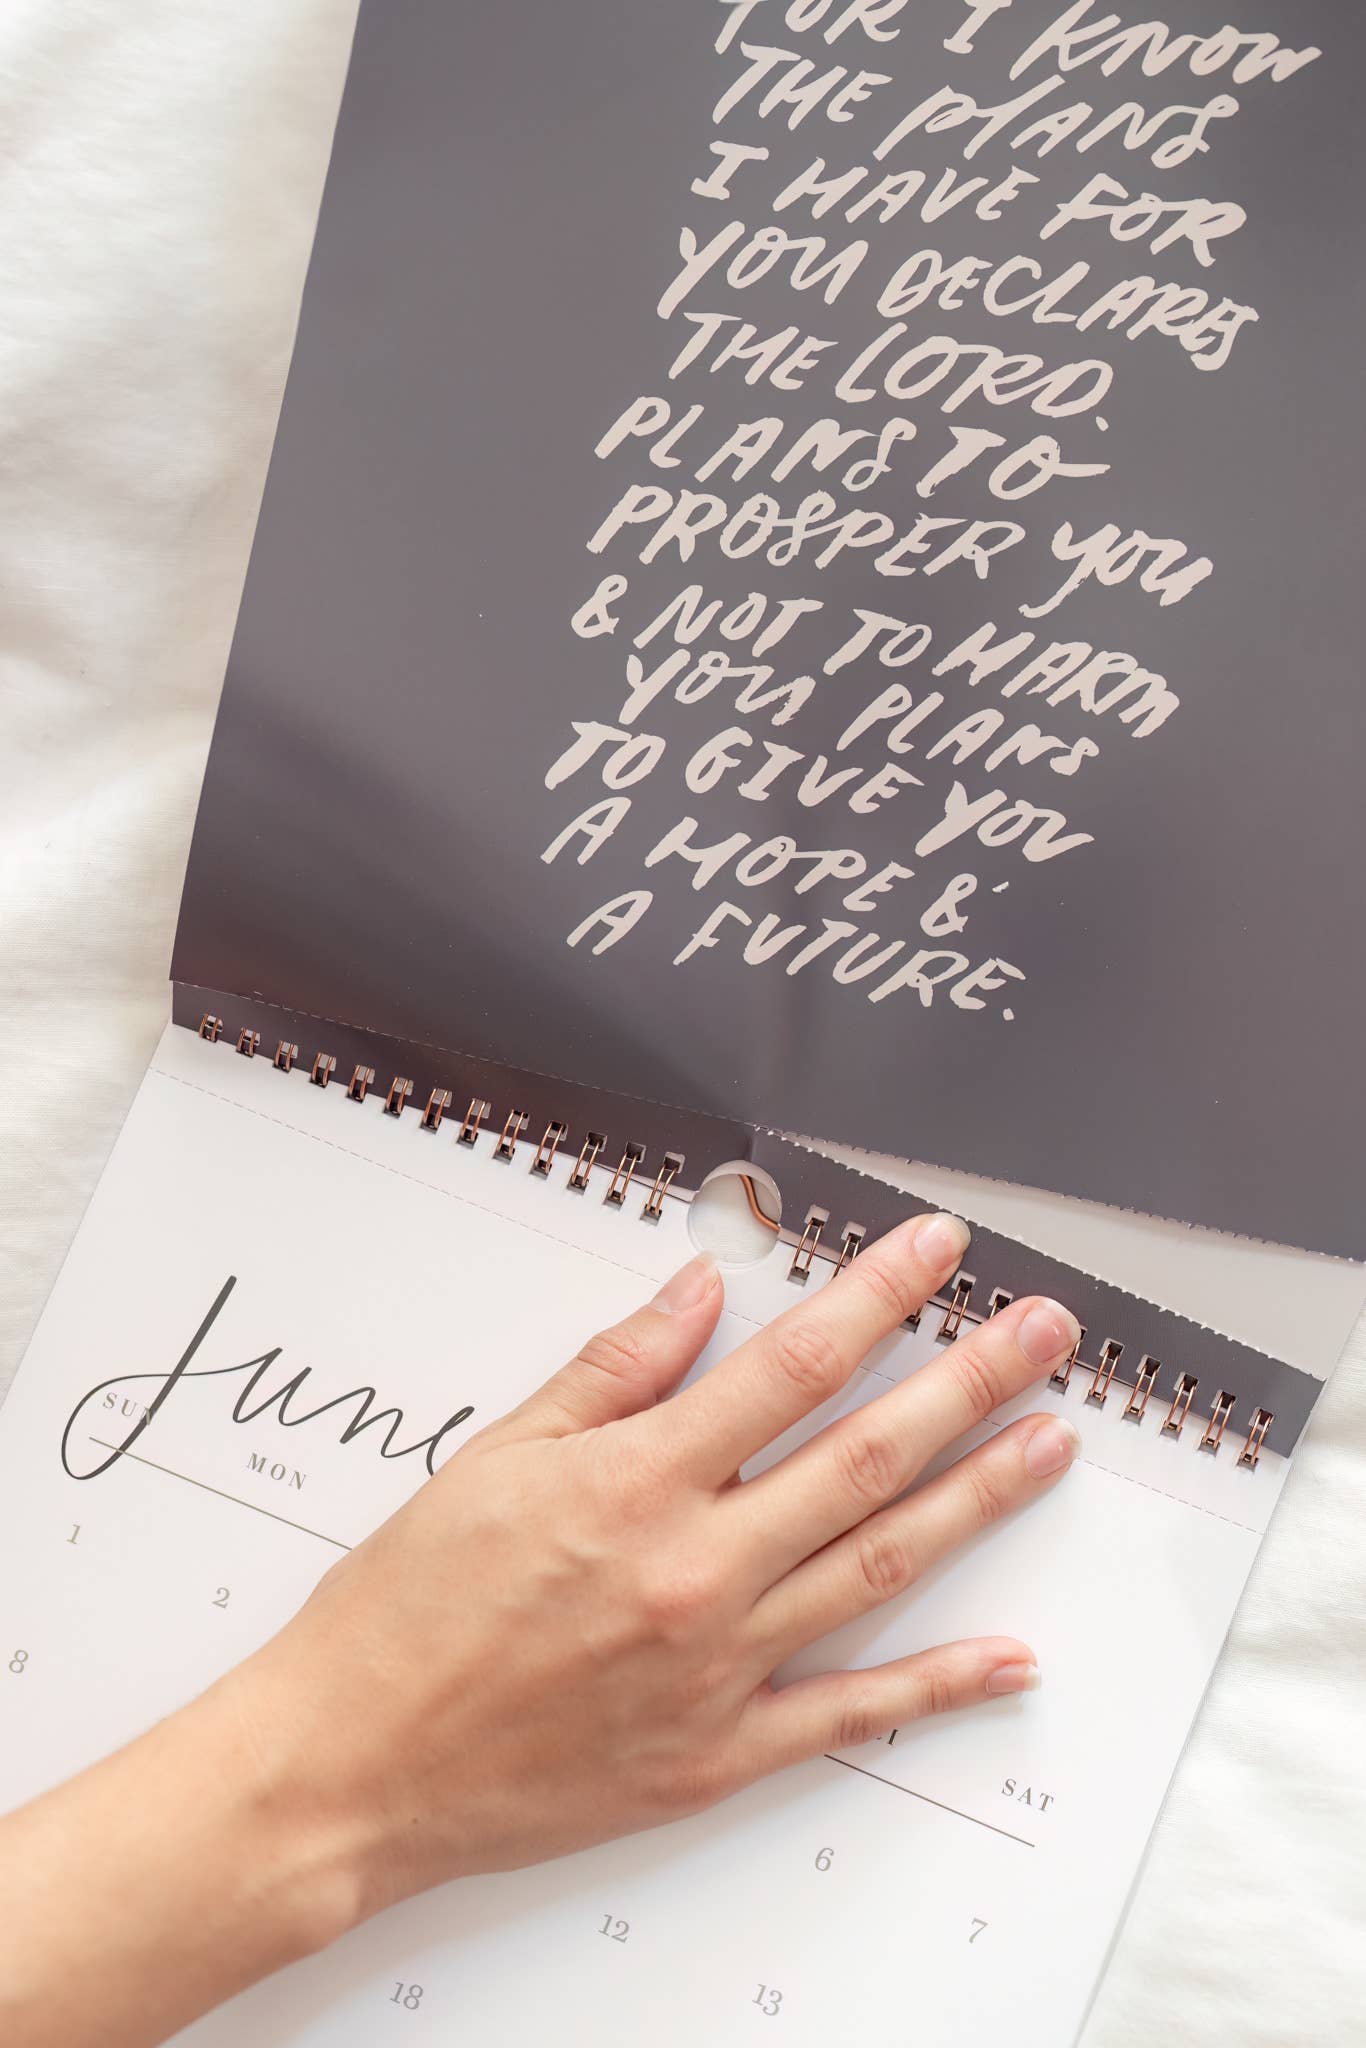 FOR I KNOW
THE PLANS
I HAVE FOR
YOU DECLARES
THE LORD.
PLANS TO
PROSPER YOU
& NOT TO HARM
YOU PLANS
TO GIVE YOU
A HOPE &
A FUTURE.
June
SUN MON SAT
1 2 6 7
8 12 13
18